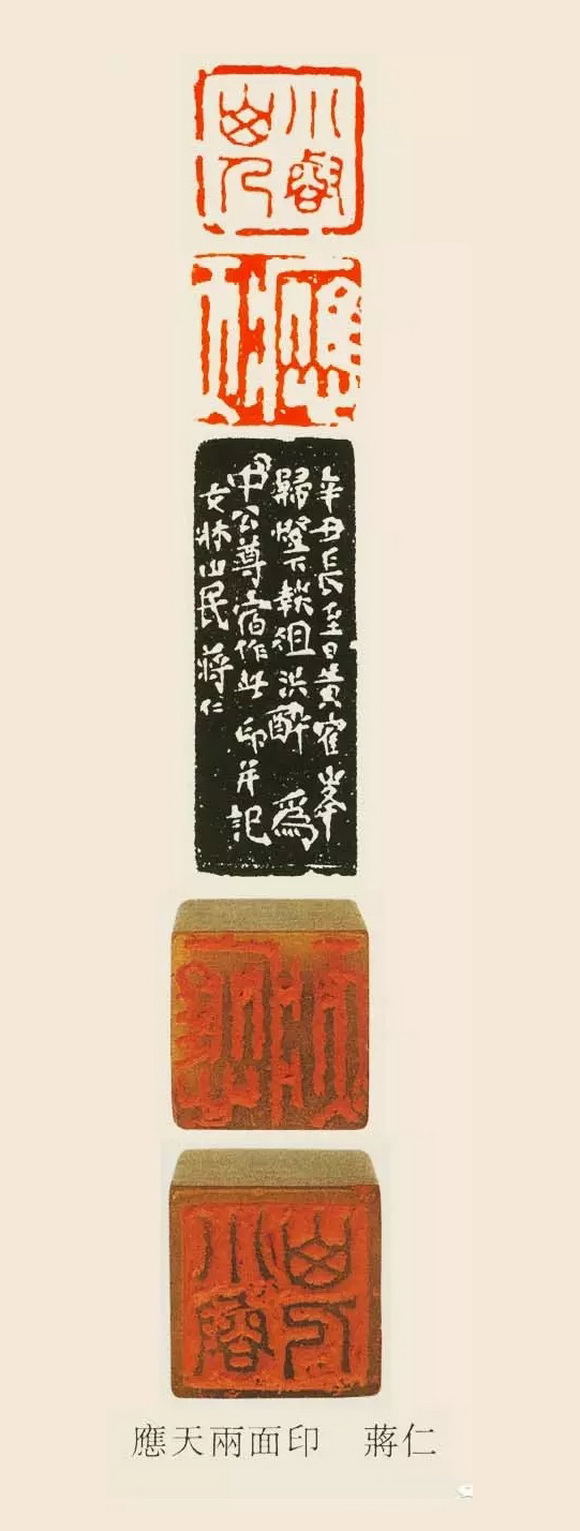 辛丑長至日黃寉峯
歸燈下談徂洪醉爲
申公尊宿作此印并記
女牀山民蔣仁
應天兩面印 蔣仁